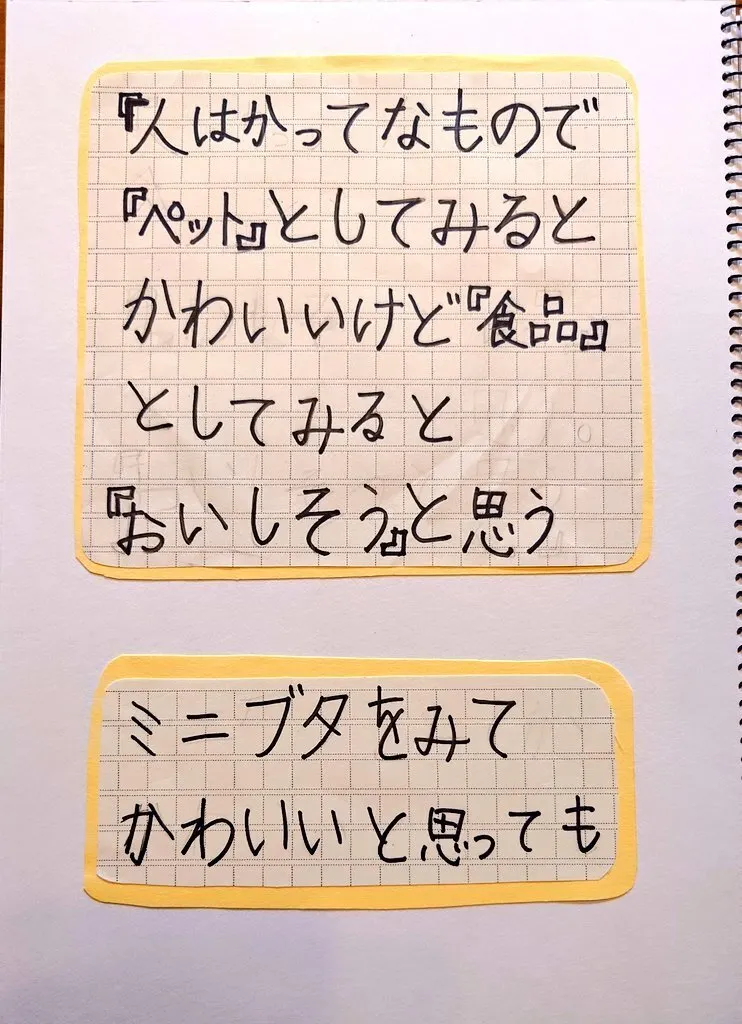 『人はかってなもので
『ペット』としてみると
かわいいけど『食品』
としてみると
『おいしそう』と思う
ミニブタをみて
かわいいと思っても